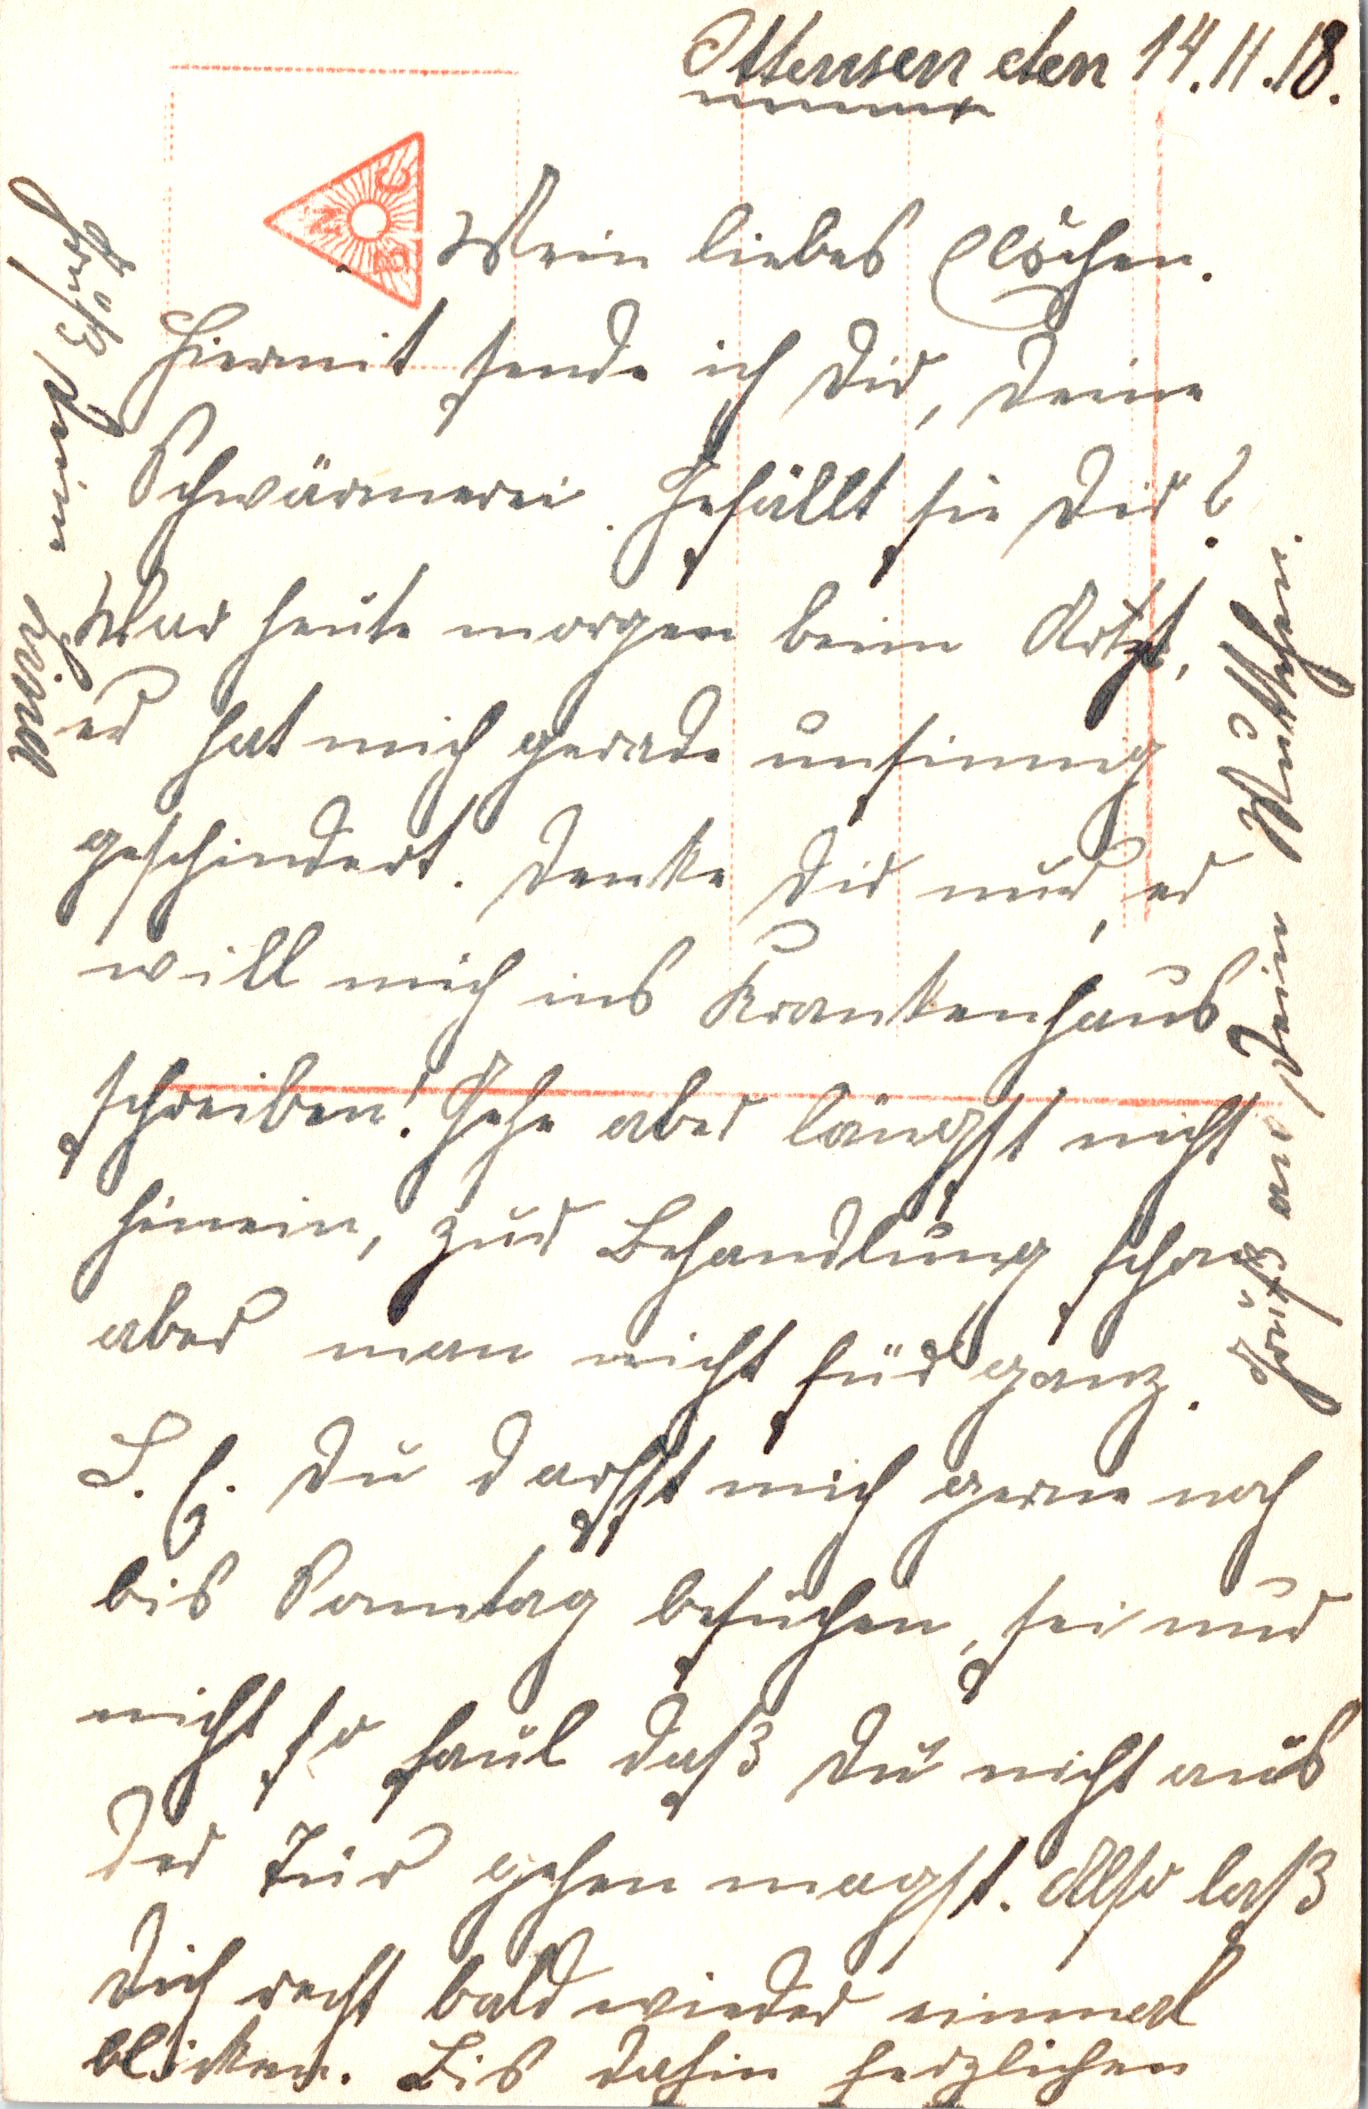 Ottensen den 14.11.18.
Mein liebes Elschen.
Hiermit sende ich Dir, Deine
Schwärmerei. Gefällt sie Dir?
War heute morgen beim Artzt,
er hat mich gerade unsinnig
geschindert. Denke Dir nur, er
will mich ins Krankenhaus
schreiben! Gehe aber längst nicht
hinein, zur Behandlung schon
aber man nicht für ganz.
L. E. Du darfst mich gerne noch
bis Sonntag besuchen, sei nur
nicht so faul daß Du nicht aus
der Tür gehen magst. Also laß
Dich recht bald wieder einmal
blicken. Bis dahin herzlichen
Gruß Deine
Gruß an Dein Muttchen.